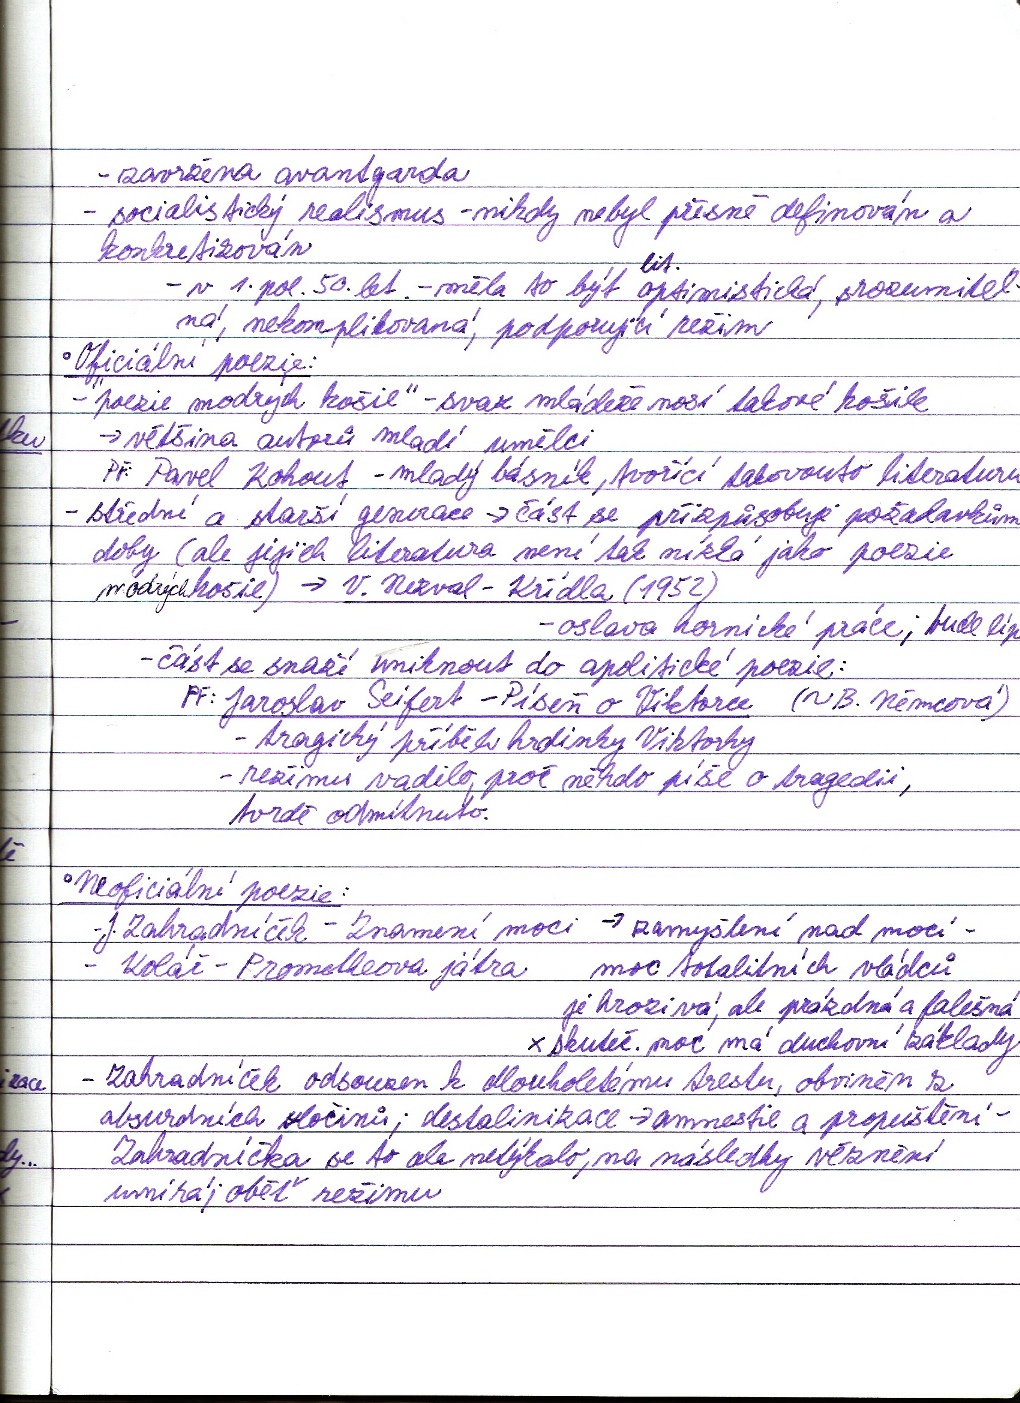 - zavržena avantgarda
- socialistický realismus - nikdy nebyl přesně definován a
konkretizován
lit.
- v 1. pol. 50. let. - měla to být optimistická, srozumitel-
ná, nekomplikovaná, podporující režim
° Oficiální poezie:
- "poezie modrých košil" - svaz mládeže nosí takové košile
→ většina autorů mladí umělci
Př: Pavel Kohout - mladý básník, tvořící takovouto literaturu
- střední a starší generace → část se přizpůsobuje požadavkům
doby (ale jejich literatura není tak nízká jako poezie
modrých košil) → V. Nezval - Křídla (1952)
- oslava hornické práce; bude líp
- část se snaží uniknout do apolitické poezie:
Př: Jaroslav Seifert - Píseň o Viktorce (~ B. Němcová)
- tragický příběh hrdinky Viktorky
- režimu vadilo, proč někdo píše o tragedii,
tvrdě odmítnuto.
° Neoficiální poezie:
- J. Zahradníček - Znamení moci → zamyšlení nad mocí -
- Kolář - Prometheova játra moc totalitních vládců
je hrozivá, ale prázdná a falešná
x skuteč. moc má duchovní základy
- Zahradníček odsouzen k dlouholetému trestu, obviněn z
absurdních zločinů; destalinizace → amnestie a propuštění -
Zahradníčka se to ale netýkalo, na následky věznění
umírá; oběť režimu